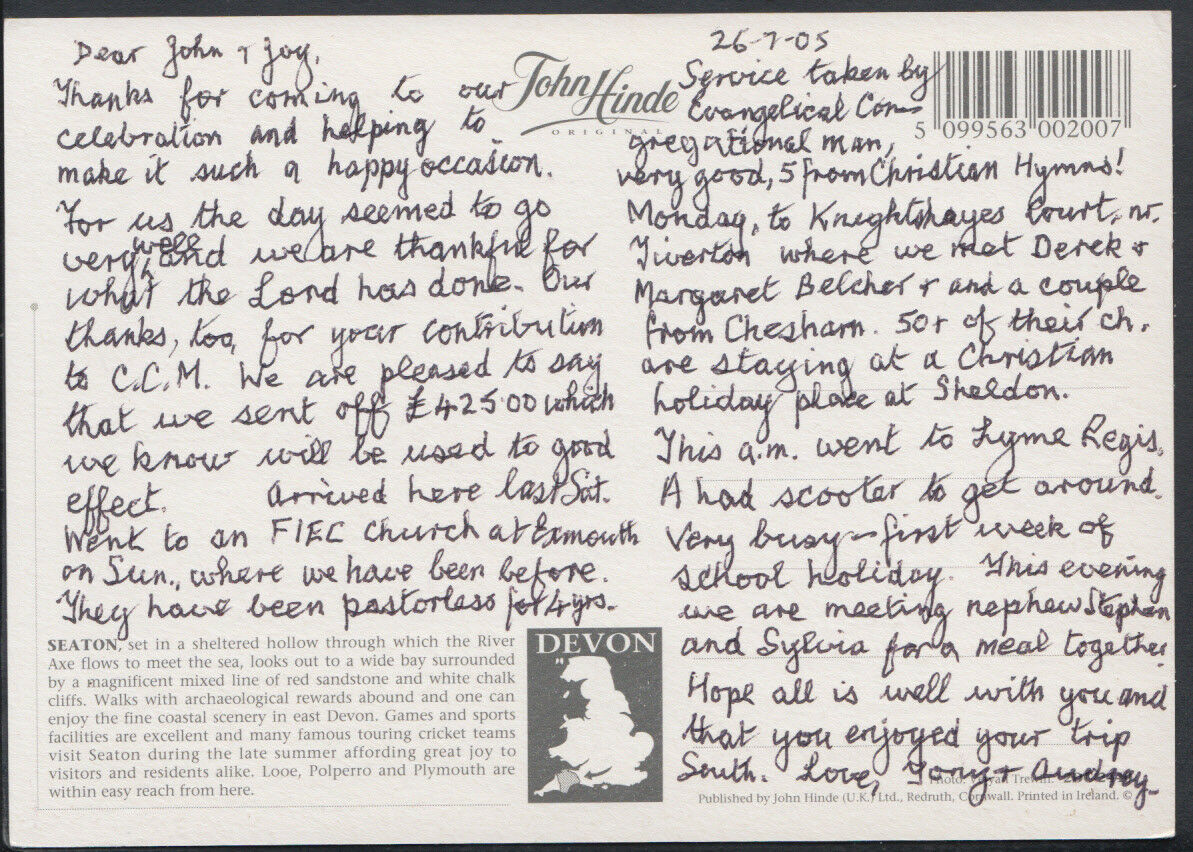 Dear John & Joy,
Thanks for coming to our
celebration and helping to
make it such a happy occasion.
For us the day seemed to go
very well and we are thankful for
what the Lord has done. Our
thanks, too, for your contribution
to C.C.M. We are pleased to say
that we sent off £425.00 which
we know will be used to good
effect. Arrived here last Sat.
Went to an FIEC Church at Exmouth
on Sun., where we have been before.
They have been pastorless for 4 yrs.
SEATON, set in a sheltered hollow through which the River
Axe flows to meet the sea, looks out to a wide bay surrounded
by a magnificent mixed line of red sandstone and white chalk
cliffs. Walks with archaeological rewards abound and one can
enjoy the fine coastal scenery in east Devon. Games and sports
facilities are excellent and many famous touring cricket teams
visit Seaton during the late summer affording great joy to
visitors and residents alike. Looe, Polperro and Plymouth are
within easy reach from here.
DEVON
John Hinde
ORIGINAL
5 099563 002007
26-7-05
Service taken by
Evangelical Con-
gregational man,
very good, 5 from Christian Hymns!
Monday, to Knightshayes Court, nr.
Tiverton where we met Derek &
Margaret Belcher & and a couple
from Chesham. 50+ of their ch.
are staying at a Christian
holiday place at Sheldon.
This a.m. went to Lyme Regis.
A had scooter to get around.
Very busy - first week of
school holiday. This evening
we are meeting nephew Stephen
and Sylvia for a meal together.
Hope all is well with you and
that you enjoyed your trip
South. Love, Tony & Audrey.
Photo:
Published by John Hinde (U.K.) Ltd., Redruth, Cornwall. Printed in Ireland. ©